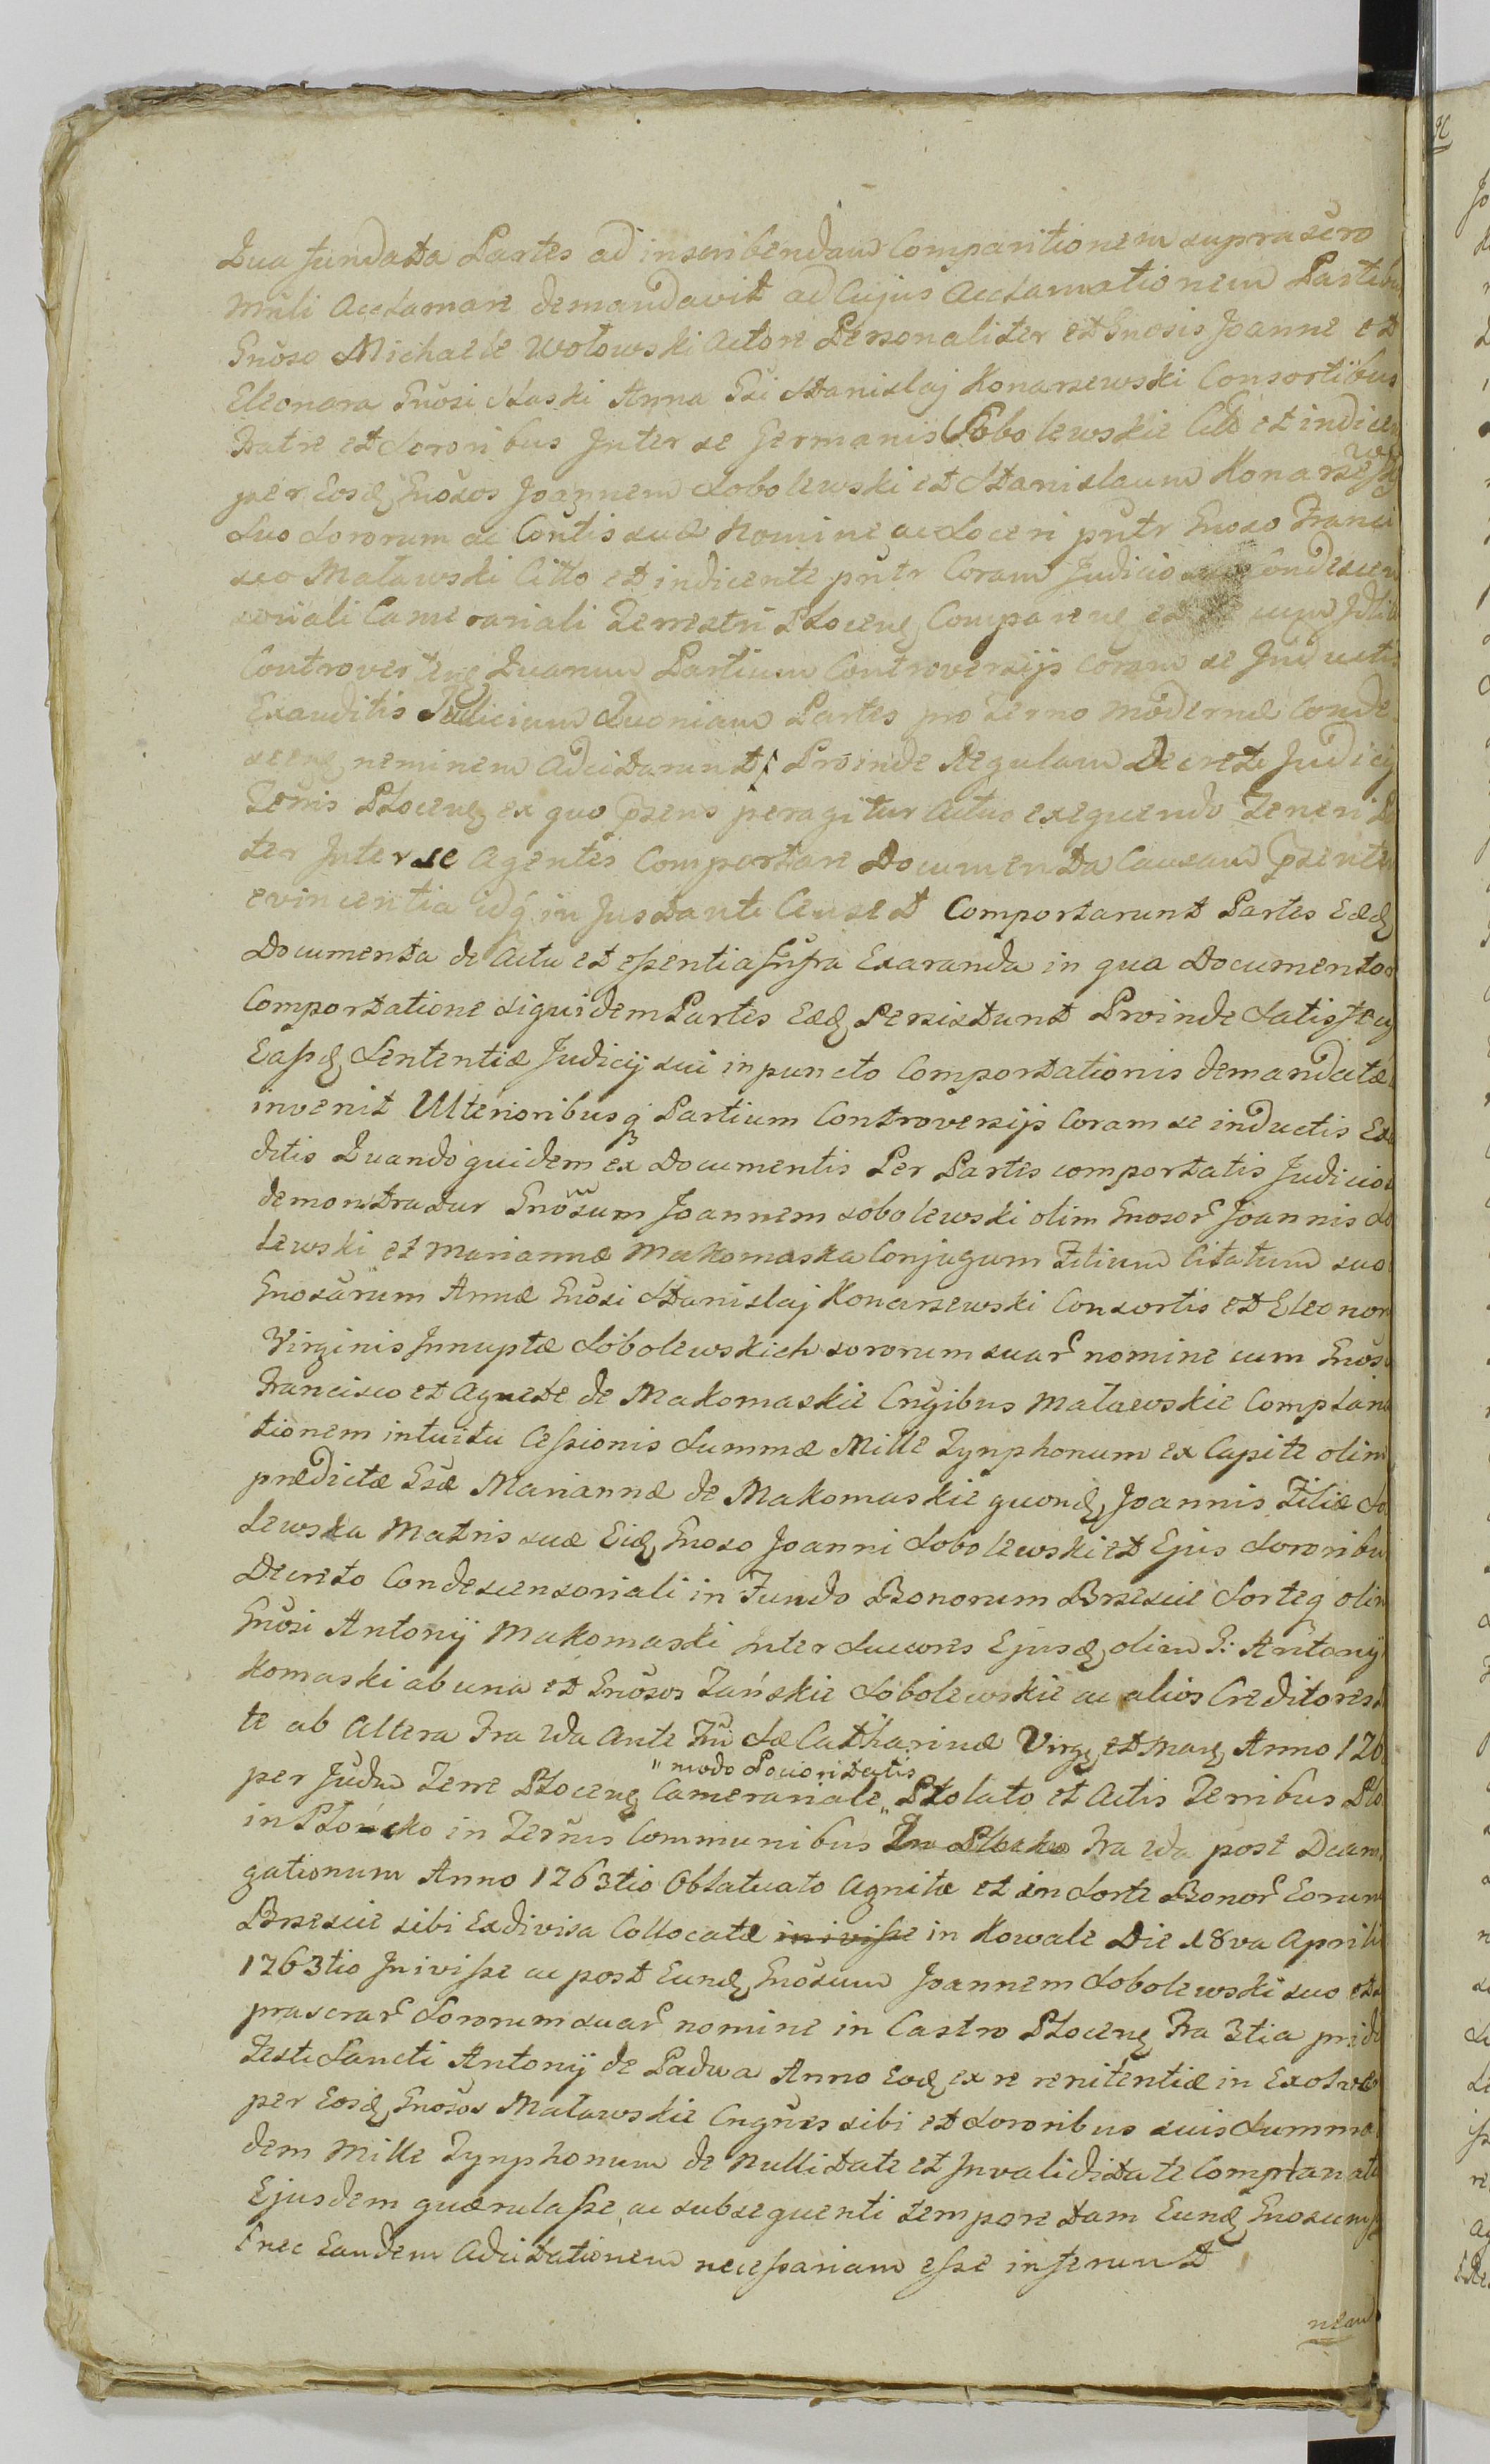 Qua fundata Partes ad inscribendam Comparitionem suprascro
Mnli Acclamare demandavit ad Cujus Acclamationem Partibus
Gnoso Michaele Wołowski Actore Personaliter et Gnosis Joanne et
Eleonora Gnosi Anna Gsi Stanislaj Konarzewski Consortibus
Fratre et Sororibus Inter se Germanis Sobolewskie Citt et indicen
per Eosq Gnosos Joannem Sobolewski et Stanislaum Konarzewski
Suo Sororum ac Contis suæ Nomine ac Soceri pntr Gnoso Franci
sco Maławski Citto et indicente pntr Coram Judicio Condescen
soriali Camerariali Terrestri Płocenq Comparenq et cum
Controverten Quarum Partium Controversijs coram se Inductis
Exauditis Judicium Quoniam Partes pro Termo modernæ Conde
scenq neminem Adcitarunt Proinde Regulam Decreti Judicij
Terris Płocenq ex quo prsens peragitur Actus exequendo Teneri
ter Inter se Agentes Comportare Documenta Causam prsentem
evincentia idq in Instanti Censet Comportarunt Partes Eædq
Documenta de Actu et essentia Infra Exaranda in qua Documentor
Comportatione siquidem Partes Eædq Persistunt Proinde Satis
Easdq Sententiæ Judicij sui in puncto Comportationis demandatæ
invenit Ulterioribusq Partium Controversijs Coram se inductis Exau
ditis Quandoquidem ex Documentis Per Partes comportatis Judicio
demonstratur Gnosum Joannem Sobolewski olim Gnosor Joannis So
lewski et Mariannæ Makomaska Conjugum Filium Citatum suo
Gnosarum Annæ Gnosi Stanislaj Konarzewski Consortis et Eleonor
Virginis Innuptæ Sobolewskich sororum suar nomine cum Gnos
Francisco et Agnete de Makomaskie Cngibus Maławskie Complana
tionem intuitu Cessionis Summæ Mille Tynphonum ex Capite olim
prædictæ Gsæ Mariannæ de Makomaskie quondq Joannis Filiæ So
lewska Matris suæ Eidq Gnoso Joanni Sobolewski et Ejus Sororibus
Decreto Condescensoriali in Fundo Bonorum Brzescie Sorteq olim
Gnosi Antonij Makomaski Inter Succores Ejusdq olim G: Antonij
Komaski ab una et Gnosos Zański Sobolewskie ac alios Creditores
te ab Altera Fra 2da Ante Fm Sæ Catharinæ Virgq et Marq Anno 176
"modo Potioritatis
per Judm Terre Płocenq Camerariale " Ptolato et Actis Terribus Pło
in Płońsko in Termis Communibus In Płocko Fra 2da post Dcam
gationum Anno 1763tio Oblatuato Agnitæ et in Sorte Bonor Eorum
Brzescie sibi Exdivisa Collocatæ inivisse in Kowale Die 18va Aprilis
1763tio Inivisse ac post Eundq Gnosum Joannem Sobolewski suo et
prascrar Sororum suar nomine in Castro Płocenq Fra 3tia pridie
Festi Sancti Antonij de Padwa Anno Eodq ex re renitentiæ in Exolve
per Eosdq Gnosos Maławskie Cngues sibi et Sororibus suis Summæ
dem Mille Tynphonum de Nullitate et Invaliditate Complanati
Ejusdem quærulasse, ac subsequenti tempore tam Eundq Gnosum
nec Eandem Adcitationem necessariam esse inferunt
neam